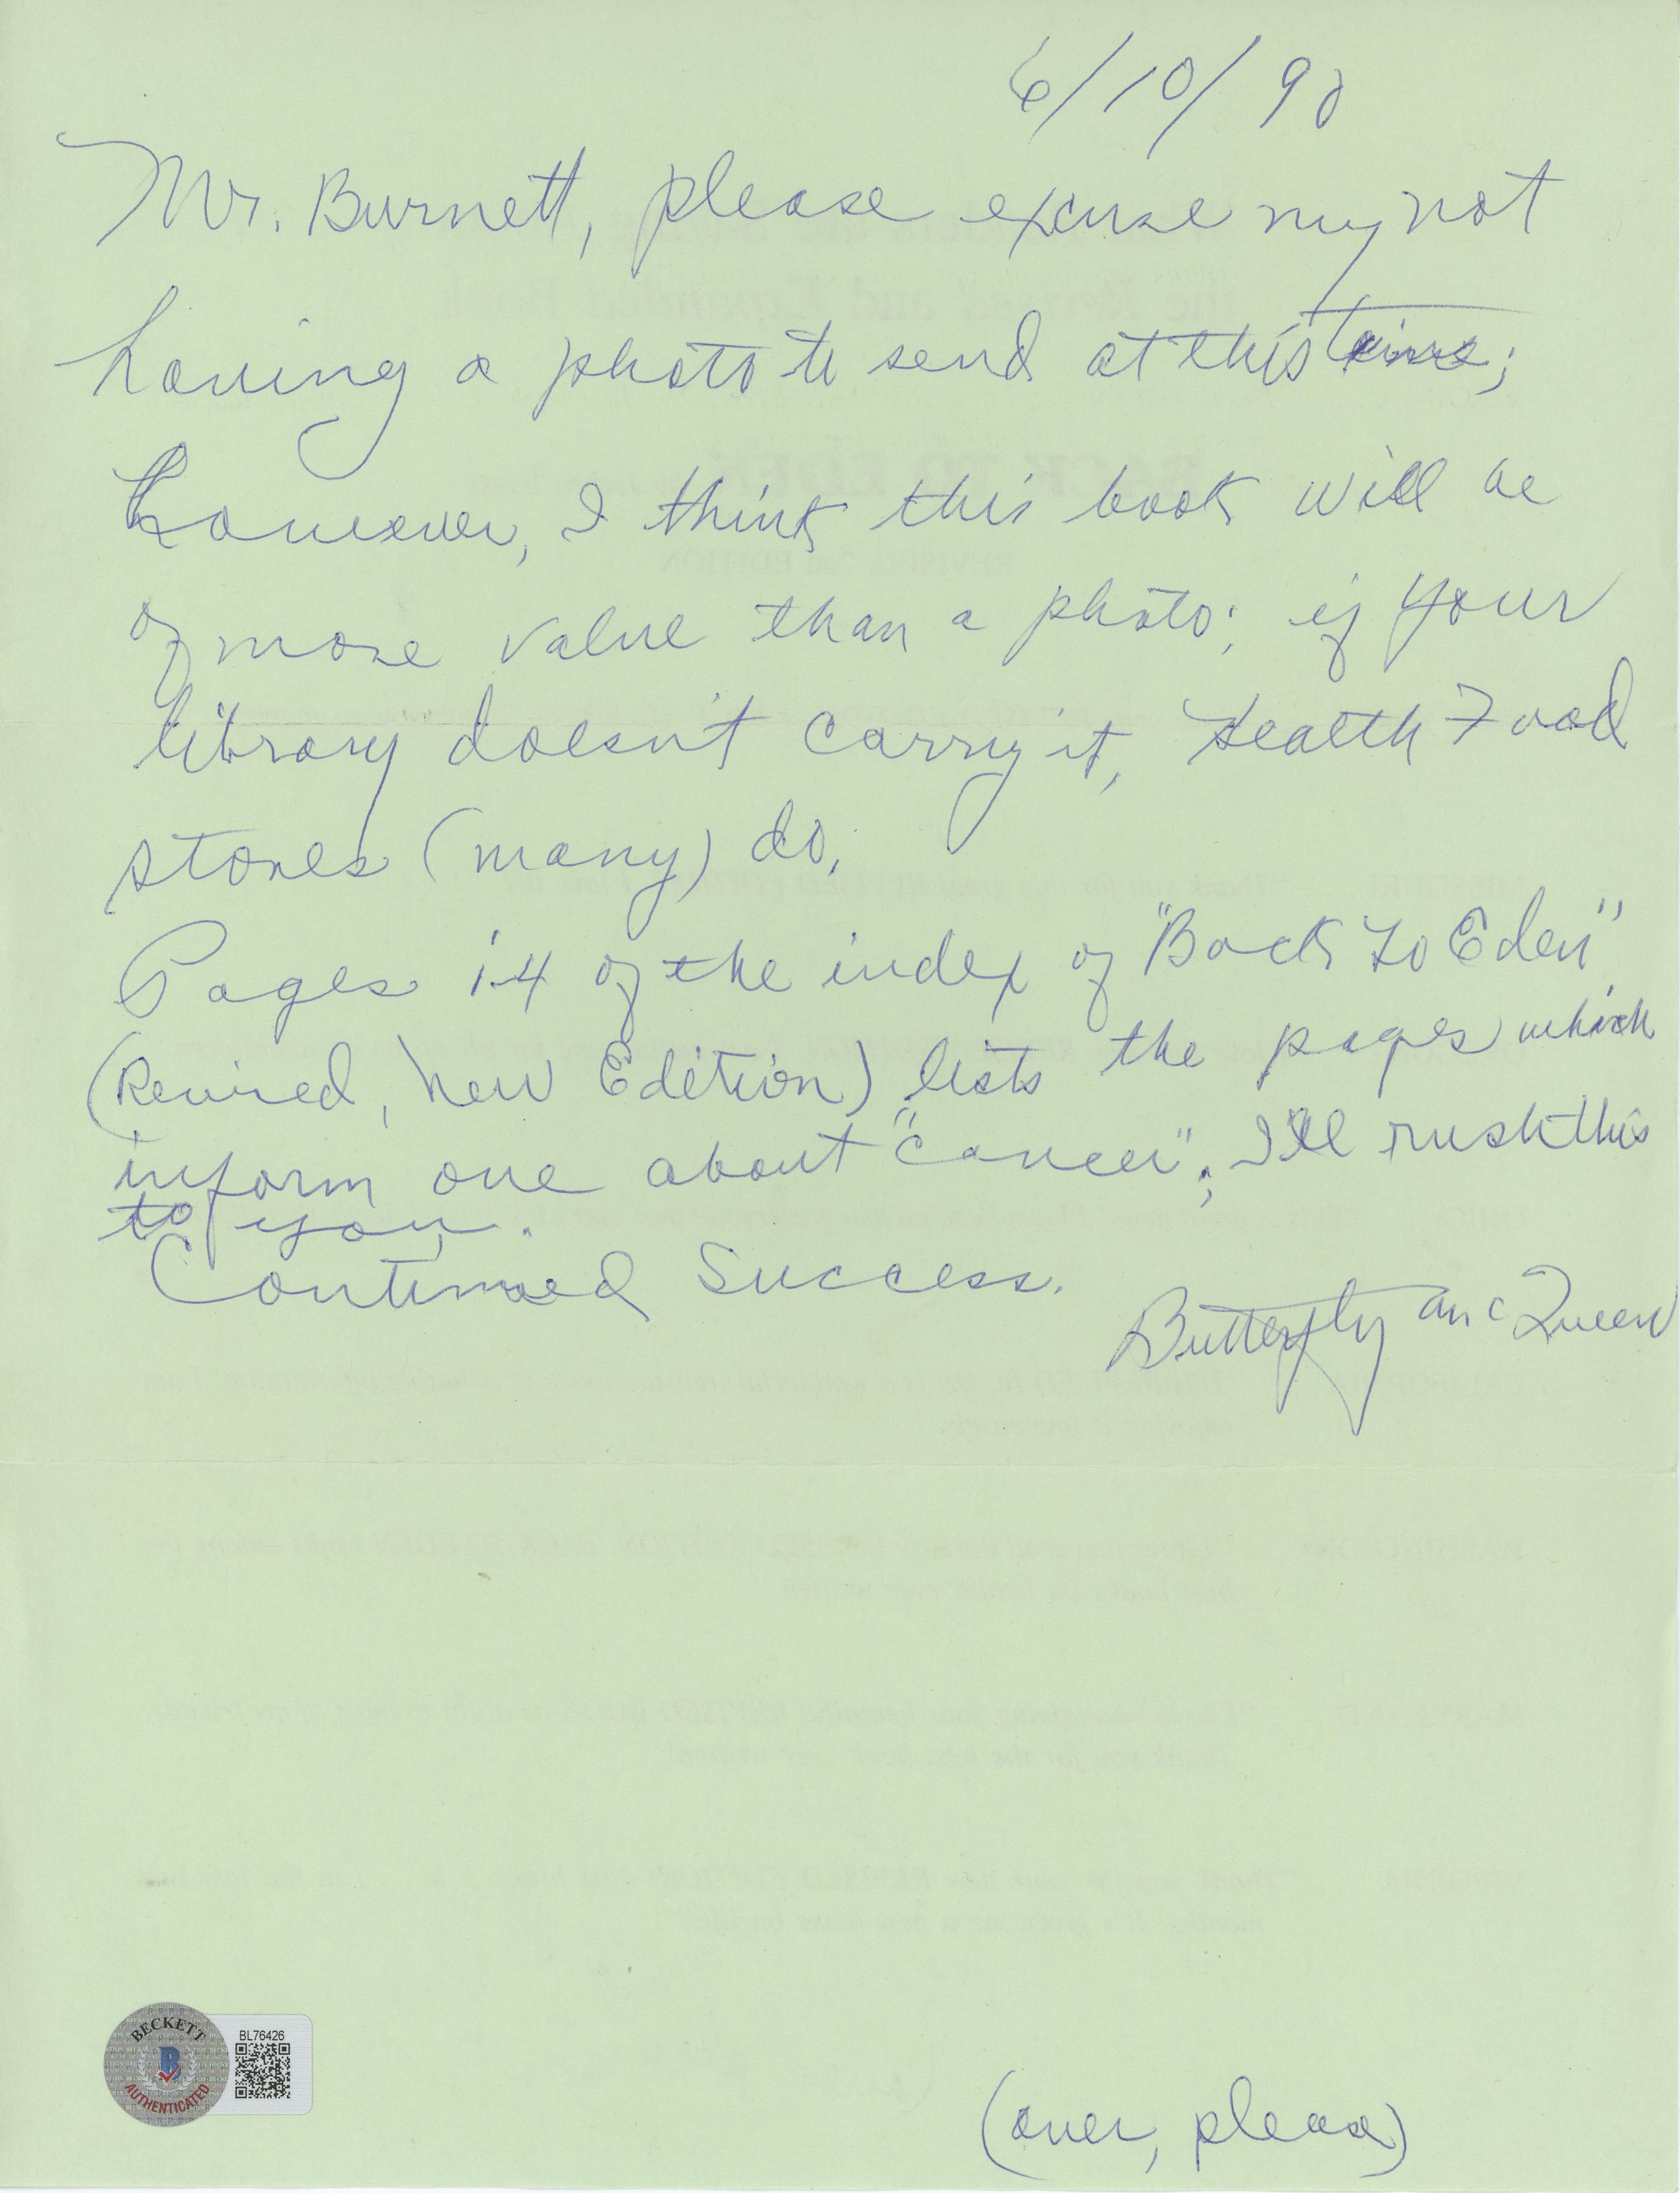 6/10/90
Mr. Burnett, please excuse my not
having a photo to send at this time;
however, I think this book will be
of more value than a photo; if your
library doesn't carry it, Health Food
stores (many) do.
Pages i-4 of the index of "Back to Eden"
(Revised, New Edition) lists the pages which
inform one about "cancer"; I'll rush this
to you.
Continued Success.
Butterfly McQueen
BECKETT
AUTHENTICATED
BL76426
(over, please)